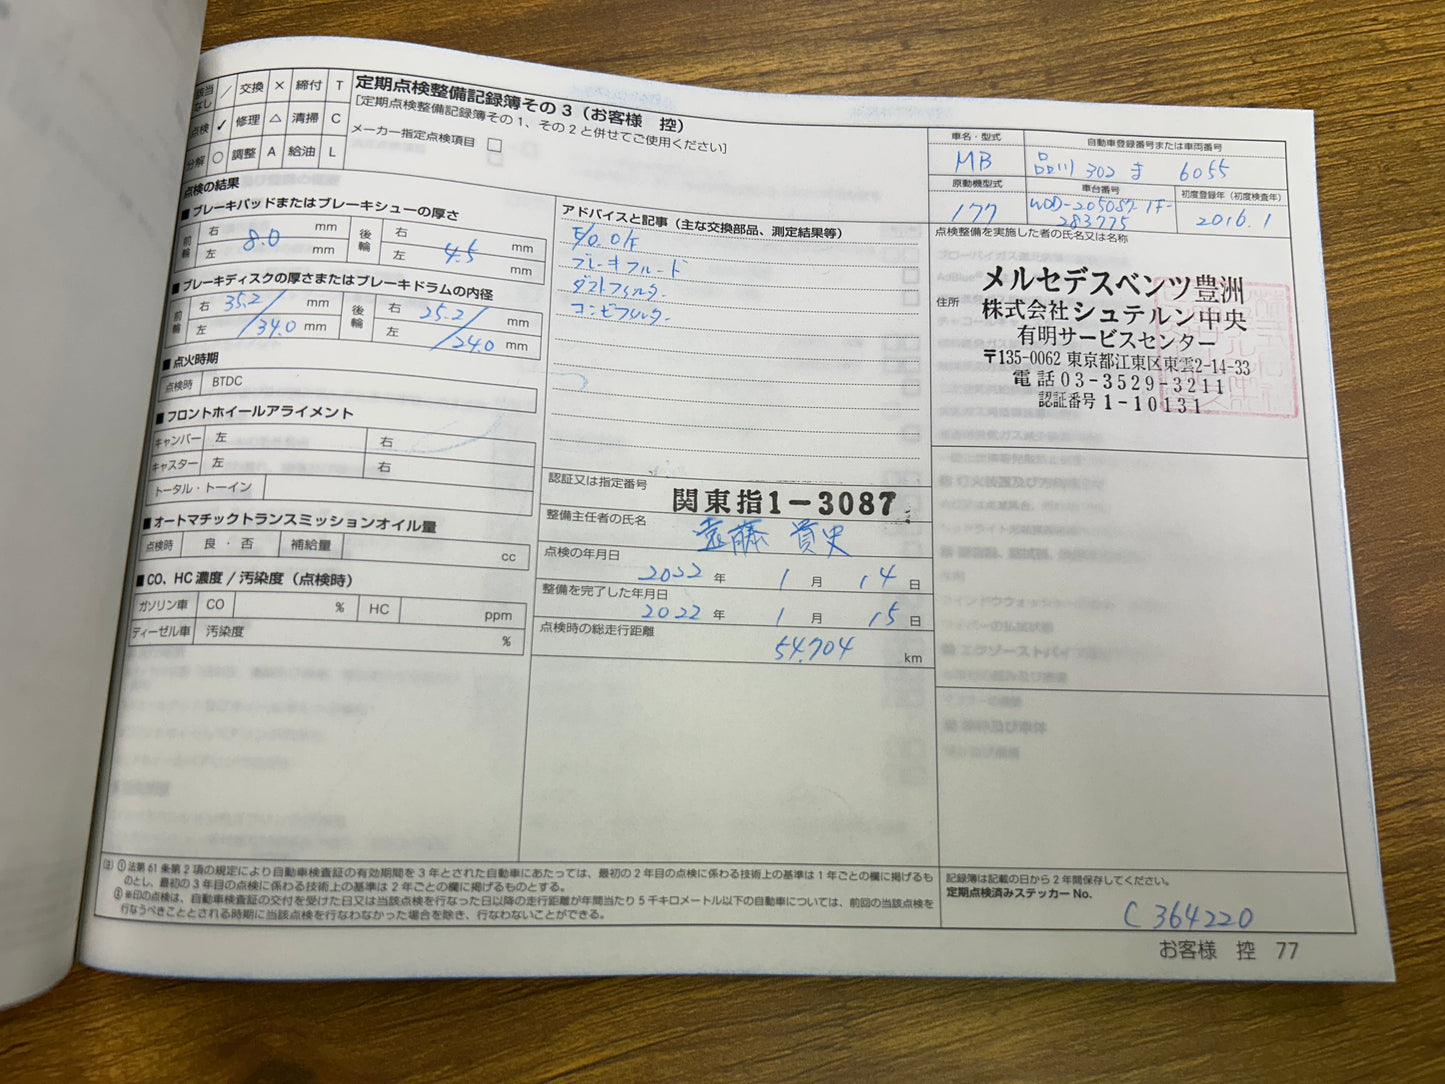 該当なし ／ 交換 × 締付 T
点検 ✓ 修理 △ 清掃 C
分解 ○ 調整 A 給油 L
定期点検整備記録簿その3（お客様 控）
[定期点検整備記録簿その1、その2と併せてご使用ください]
メーカー指定点検項目 □
点検の結果
■ブレーキパッドまたはブレーキシューの厚さ
前輪 右 mm 後輪 右 mm
左 8.0 mm 左 4.5 mm
■ブレーキディスクの厚さまたはブレーキドラムの内径
前輪 右 35.2 mm 後輪 右 25.2 mm
左 34.0 mm 左 24.0 mm
■点火時期
点検時 BTDC
■フロントホイールアライメント
キャンバー 左 右
キャスター 左 右
トータル・トーイン
■オートマチックトランスミッションオイル量
点検時 良・否 補給量 cc
■CO、HC濃度/汚染度（点検時）
ガソリン車 CO % HC ppm
ディーゼル車 汚染度 %
アドバイスと記事（主な交換部品、測定結果等）
E/O. O/F
ブレーキフルード
ダストフィルター
コンビフィルター
認証又は指定番号
関東指1-3087
整備主任者の氏名
遠藤 貴史
点検の年月日
2022 年 1 月 14 日
整備を完了した年月日
2022 年 1 月 15 日
点検時の総走行距離
54,704 km
車名・型式 自動車登録番号または車両番号
MB 品川 302 ま 6055
原動機型式 車台番号 初度登録年（初度検査年）
177 WDD-2050871F-283775 2016.1
点検整備を実施した者の氏名又は名称
住所
メルセデスベンツ豊洲
株式会社シュテルン中央
有明サービスセンター
〒135-0062 東京都江東区東雲2-14-33
電話03-3529-3211
認証番号1-10131
(注) ①法第61条第2項の規定により自動車検査証の有効期間を3年とされた自動車にあたっては、最初の2年目の点検に係わる技術上の基準は1年ごとの欄に掲げるも
のとし、最初の3年目の点検に係わる技術上の基準は2年ごとの欄に掲げるものとする。
②※印の点検は、自動車検査証の交付を受けた日又は当該点検を行なった日以降の走行距離が年間当たり5千キロメートル以下の自動車については、前回の当該点検を
行なうべきこととされる時期に当該点検を行なわなかった場合を除き、行なわないことができる。
記録簿は記載の日から2年間保存してください。
定期点検済みステッカーNo.
C 364220
お客様 控 77